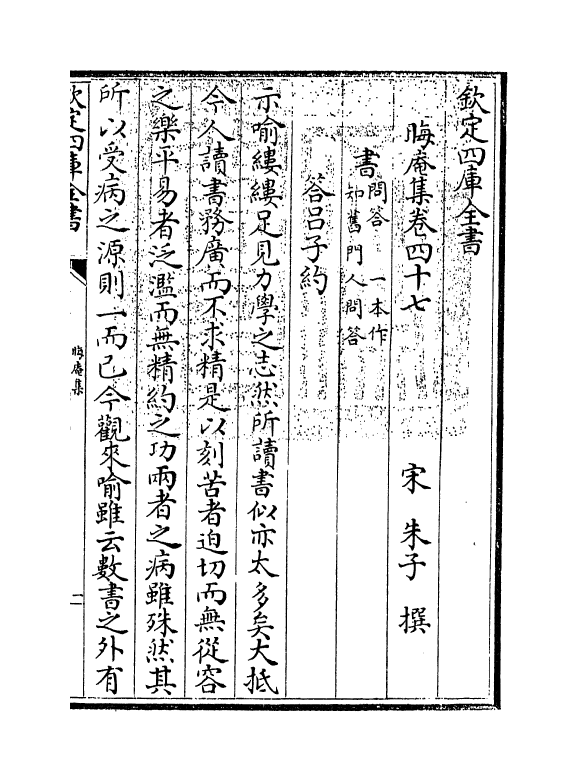 欽定四庫全書
晦庵集卷四十七
宋 朱子 撰
書問答 一本作
知舊門人問答
答吕子約
示喻縷縷足見力學之志然所讀書似亦太多矣大抵
今人讀書務廣而不求精是以刻苦者迫切而無從容
之樂平易者泛濫而無精約之功兩者之病雖殊然其
所以受病之源則一而已今觀來喻雖云數書之外有
欽定四庫全書
晦庵集